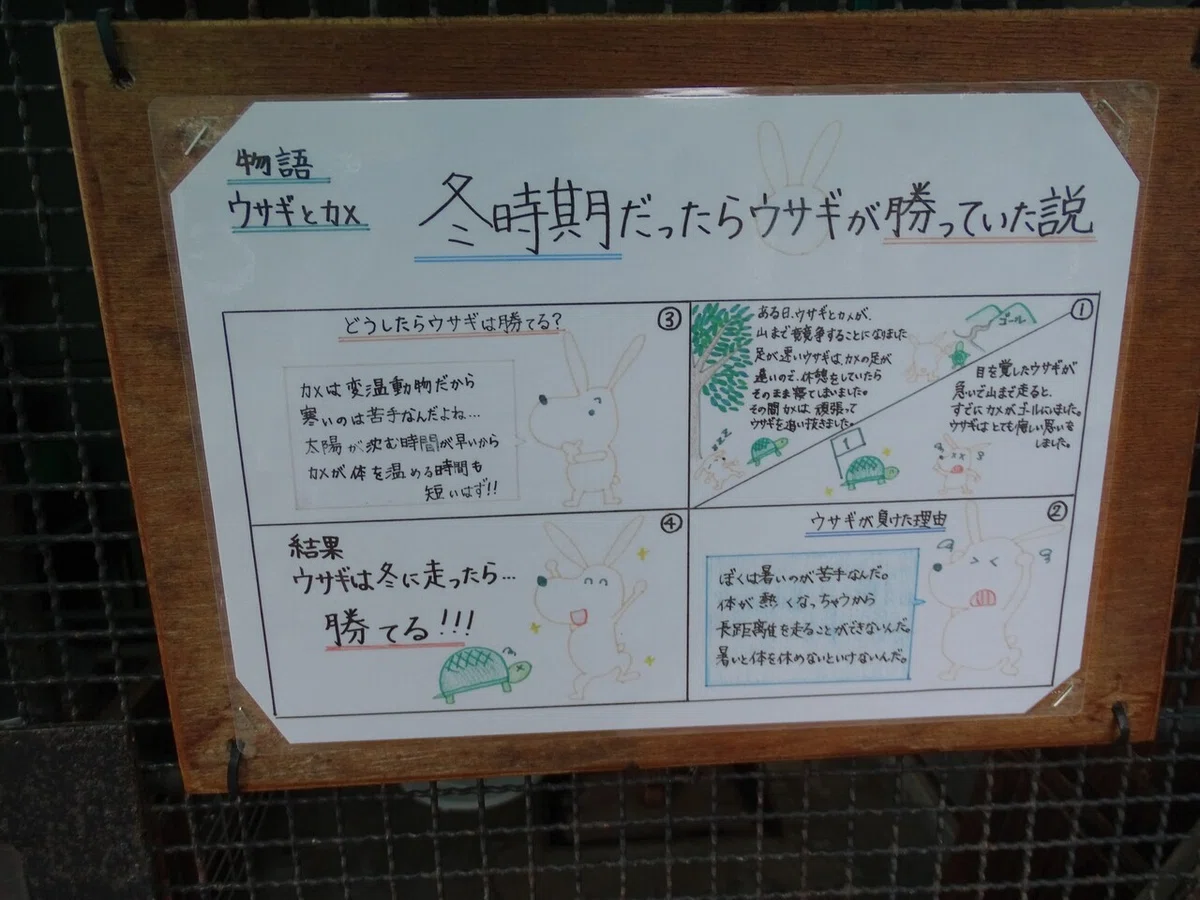 物語
ウサギとカメ
冬時期だったらウサギが勝っていた説
①
ある日、ウサギとカメが、
山まで競争することになりました
足が速いウサギは、カメの足が
遅いので、休憩をしていたら
そのまま寝てしまいました。
その間カメは、頑張って
ウサギを追い抜きました。
zzz
1
ゴール
目を覚したウサギが
急いで山まで走ると、
すでにカメがゴールにいました。
ウサギはとても悔しい思いを
しました。
②
ウサギが負けた理由
ぼくは暑いのが苦手なんだ。
体が熱くなっちゃうから
長距離を走ることができないんだ。
暑いと体を休めないといけないんだ。
③
どうしたらウサギは勝てる?
カメは変温動物だから
寒いのは苦手なんだよね…
太陽が沈む時間が早いから
カメが体を温める時間も
短いはず!!
④
結果
ウサギは冬に走ったら…
勝てる!!!